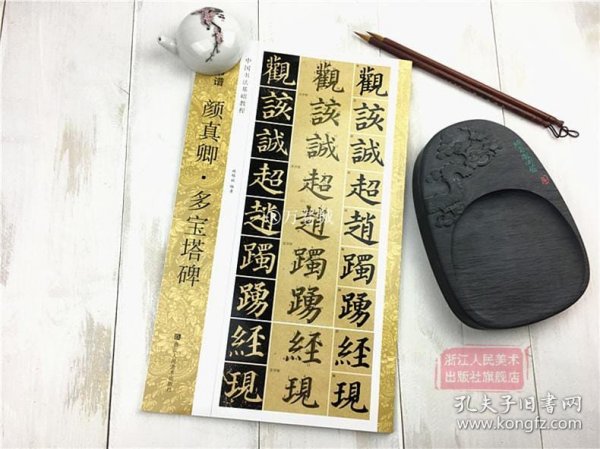 谱
颜真卿·多宝塔碑
中国书法基础教程
觀 觀 觀
該 該 該
誠 誠 誠
超 超 超
趙 趙 趙
躅 躅 躅
踴 踴 踴
經 經 經
現 現 現
浙江人民美术
出版社旗舰店
孔夫子旧书网
www.kongfz.com